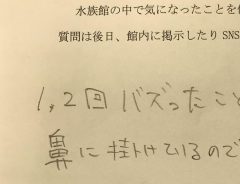 水族館の中で気になったことを
質問は後日、館内に掲示したりSNS
1,2回バズったこと
鼻に掛けているので